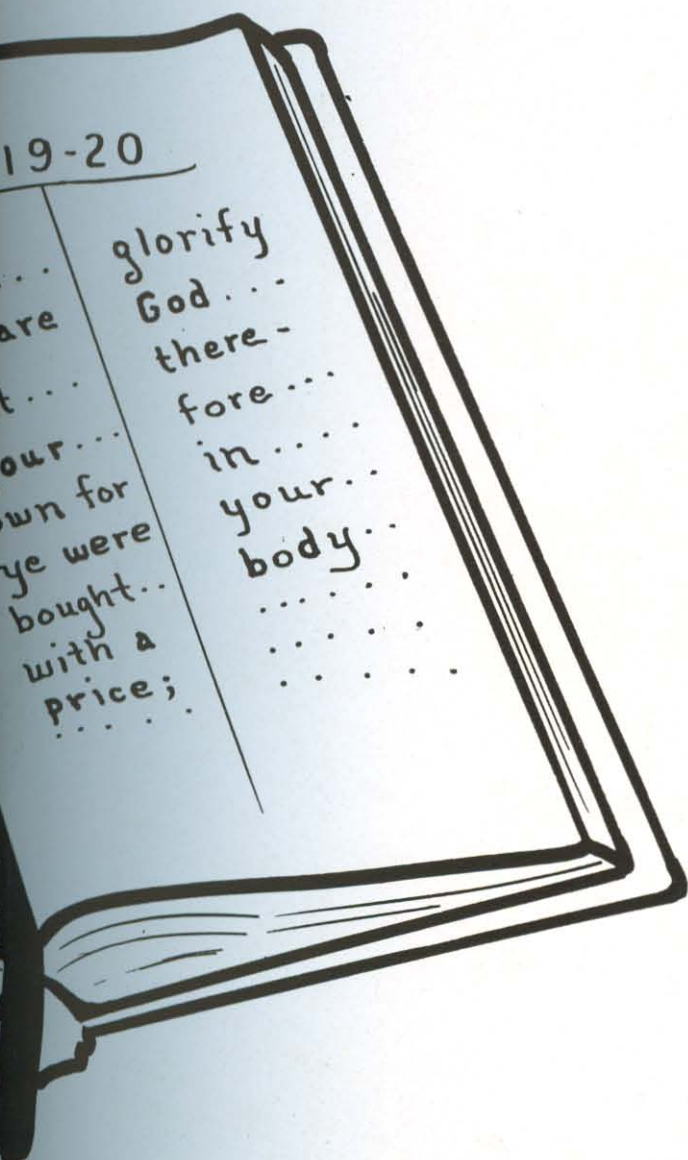 19-20
...
are
t...
our...
wn for
ye were
bought..
with a
price;
......
glorify
God...
there-
fore...
in....
your..
body..
......
.....
.....